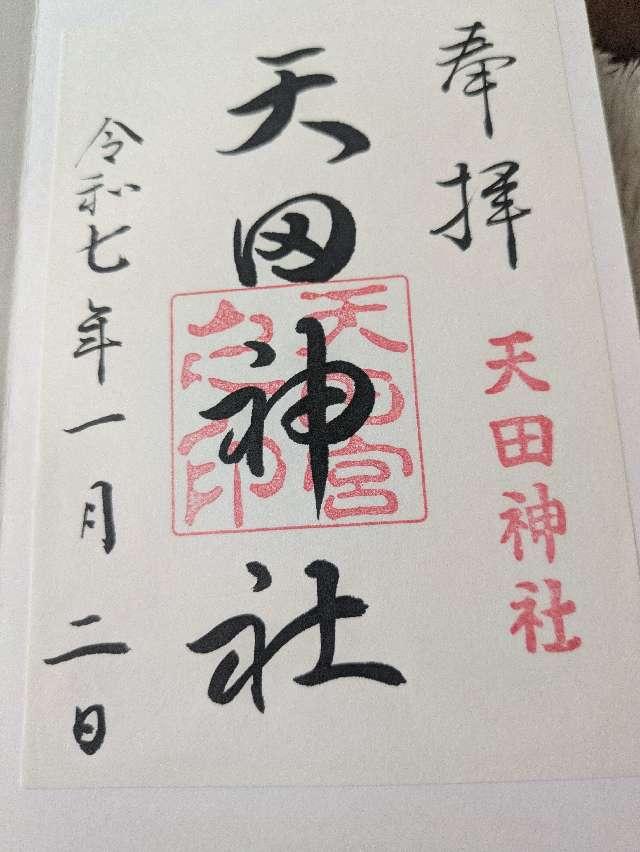 奉拝
天田神社
天田神社
天田宮
之印
令和七年一月二日